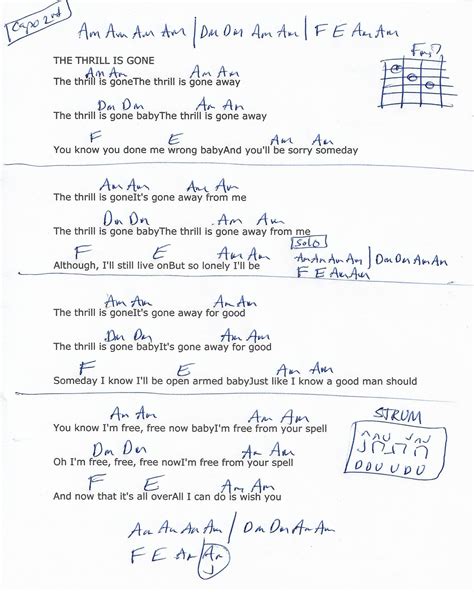 Capo 2nd
Am Am Am Am | Dm Dm Am Am | F E Am Am
Fmaj7
THE THRILL IS GONE
Am Am Am Am
The thrill is goneThe thrill is gone away
Dm Dm Am Am
The thrill is gone babyThe thrill is gone away
F E Am Am
You know you done me wrong babyAnd you'll be sorry someday
Am Am Am Am
The thrill is goneIt's gone away from me
Dm Dm Am Am
The thrill is gone babyThe thrill is gone away from me
SOLO
F E Am Am
Am Am Am Am | Dm Dm Am Am
Although, I'll still live onBut so lonely I'll be
F E Am Am
Am Am Am Am
The thrill is goneIt's gone away for good
Dm Dm Am Am
The thrill is gone babyIt's gone away for good
F E Am Am
Someday I know I'll be open armed babyJust like I know a good man should
Am Am Am Am
You know I'm free, free now babyI'm free from your spell
STRUM
D D U U D U
Dm Dm Am Am
Oh I'm free, free, free nowI'm free from your spell
F E Am Am
And now that it's all overAll I can do is wish you
Am Am Am Am | Dm Dm Am Am
F E Am Am